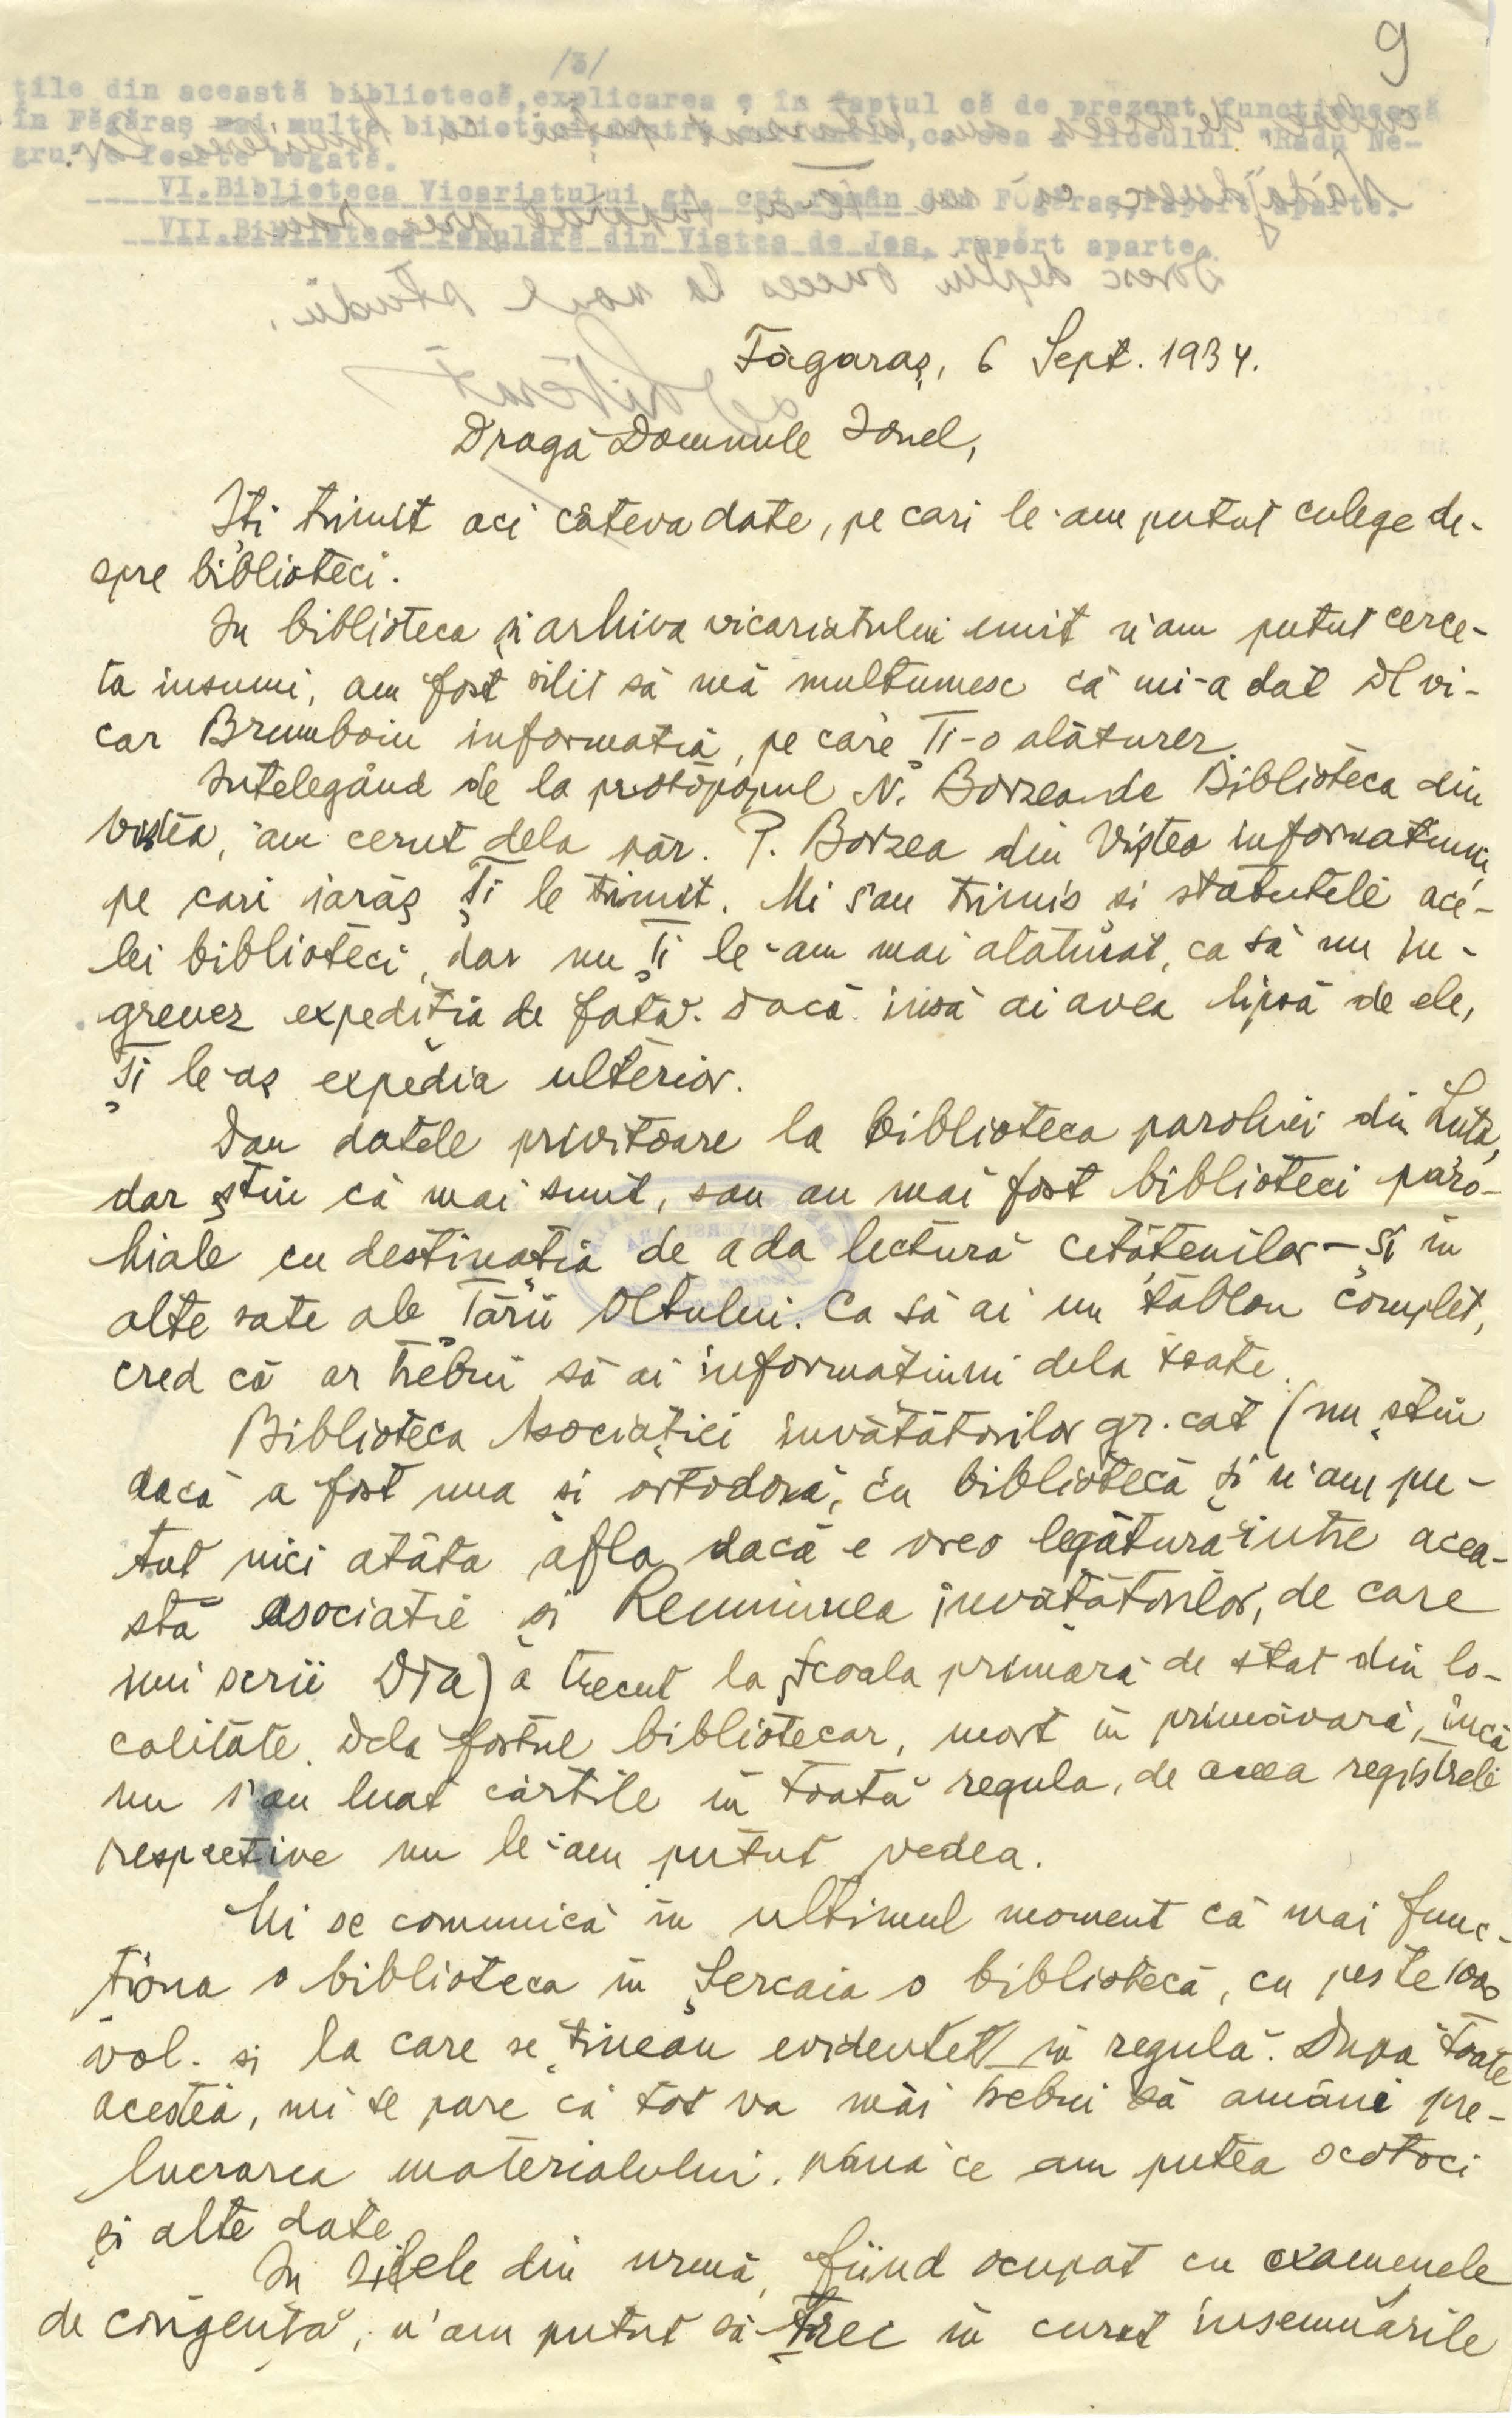 9
/3/
țile din această bibliotecă, explicarea e în faptul că de prezent funcționează
în Făgăraș mai multe biblioteci, ca cea a liceului "Radu Ne-
gru", foarte bogată.
VI. Biblioteca Vicariatului gr. cat. român din Făgăraș, raport aparte.
VII. Biblioteca Populară din Viștea de Jos, raport aparte.
Făgăraș, 6 Sept. 1934.
Dragă Domnule Ionel,
Iți trimit aci câteva date, pe cari le-am putut culege de-
spre biblioteci.
In biblioteca și arhiva vicariatului unit n'am putut cerce-
ta insumi, am fost silit să mă multumesc că mi-a dat Dl vi-
car Brumboiu informația, pe care Ți-o alăturez.
Intelegând de la protopopul N. Borzea de Biblioteca din
Viștea, am cerut dela păr. P. Borzea din Viștea informatiuni
pe cari iarăș Ți le trimit. Mi s'au trimis și statutele ace-
lei biblioteci, dar nu Ți le-am mai alăturat, ca să nu in-
greuez expediția de fată. Dacă insă ai avea lipsă de ele,
Ți le-aș expedia ulterior.
Dau datele privitoare la biblioteca parohiei din Luța,
dar știu că mai sunt, sau au mai fost biblioteci paro-
hiale cu destinația de a da lectură cetățenilor – și in
alte sate ale Țării Oltului. Ca să ai un tablou complet,
cred că ar trebui să ai informatiuni dela toate.
Biblioteca Asociației invătătorilor gr. cat (nu știu
dacă a fost una și ortodoxă, cu bibliotecă și n'am pu-
tut nici atâta afla dacă e vreo legătură intre acea-
stă asociatie și Reuniunea invătătorilor, de care
imi scrii DTa) a trecut la școala primară de stat din lo-
calitate. Dela fostul bibliotecar, mort in primăvară, incă
nu s'au luat cărtile in toată regula, de aceea registrele
respective nu le-am putut vedea.
Mi se comunică in ultimul moment că mai func-
ționa o biblioteca in Șercaia o bibliotecă, cu peste 1000
vol. și la care se țineau evidentele in regulă. După toate
acestea, mi se pare că tot va mai trebui să amâni pre-
lucrarea materialului, până ce am putea scotoci
și alte date.
In zilele din urmă, fiind ocupat cu examenele
de corigență, n'am putut să trec in curat insemnările